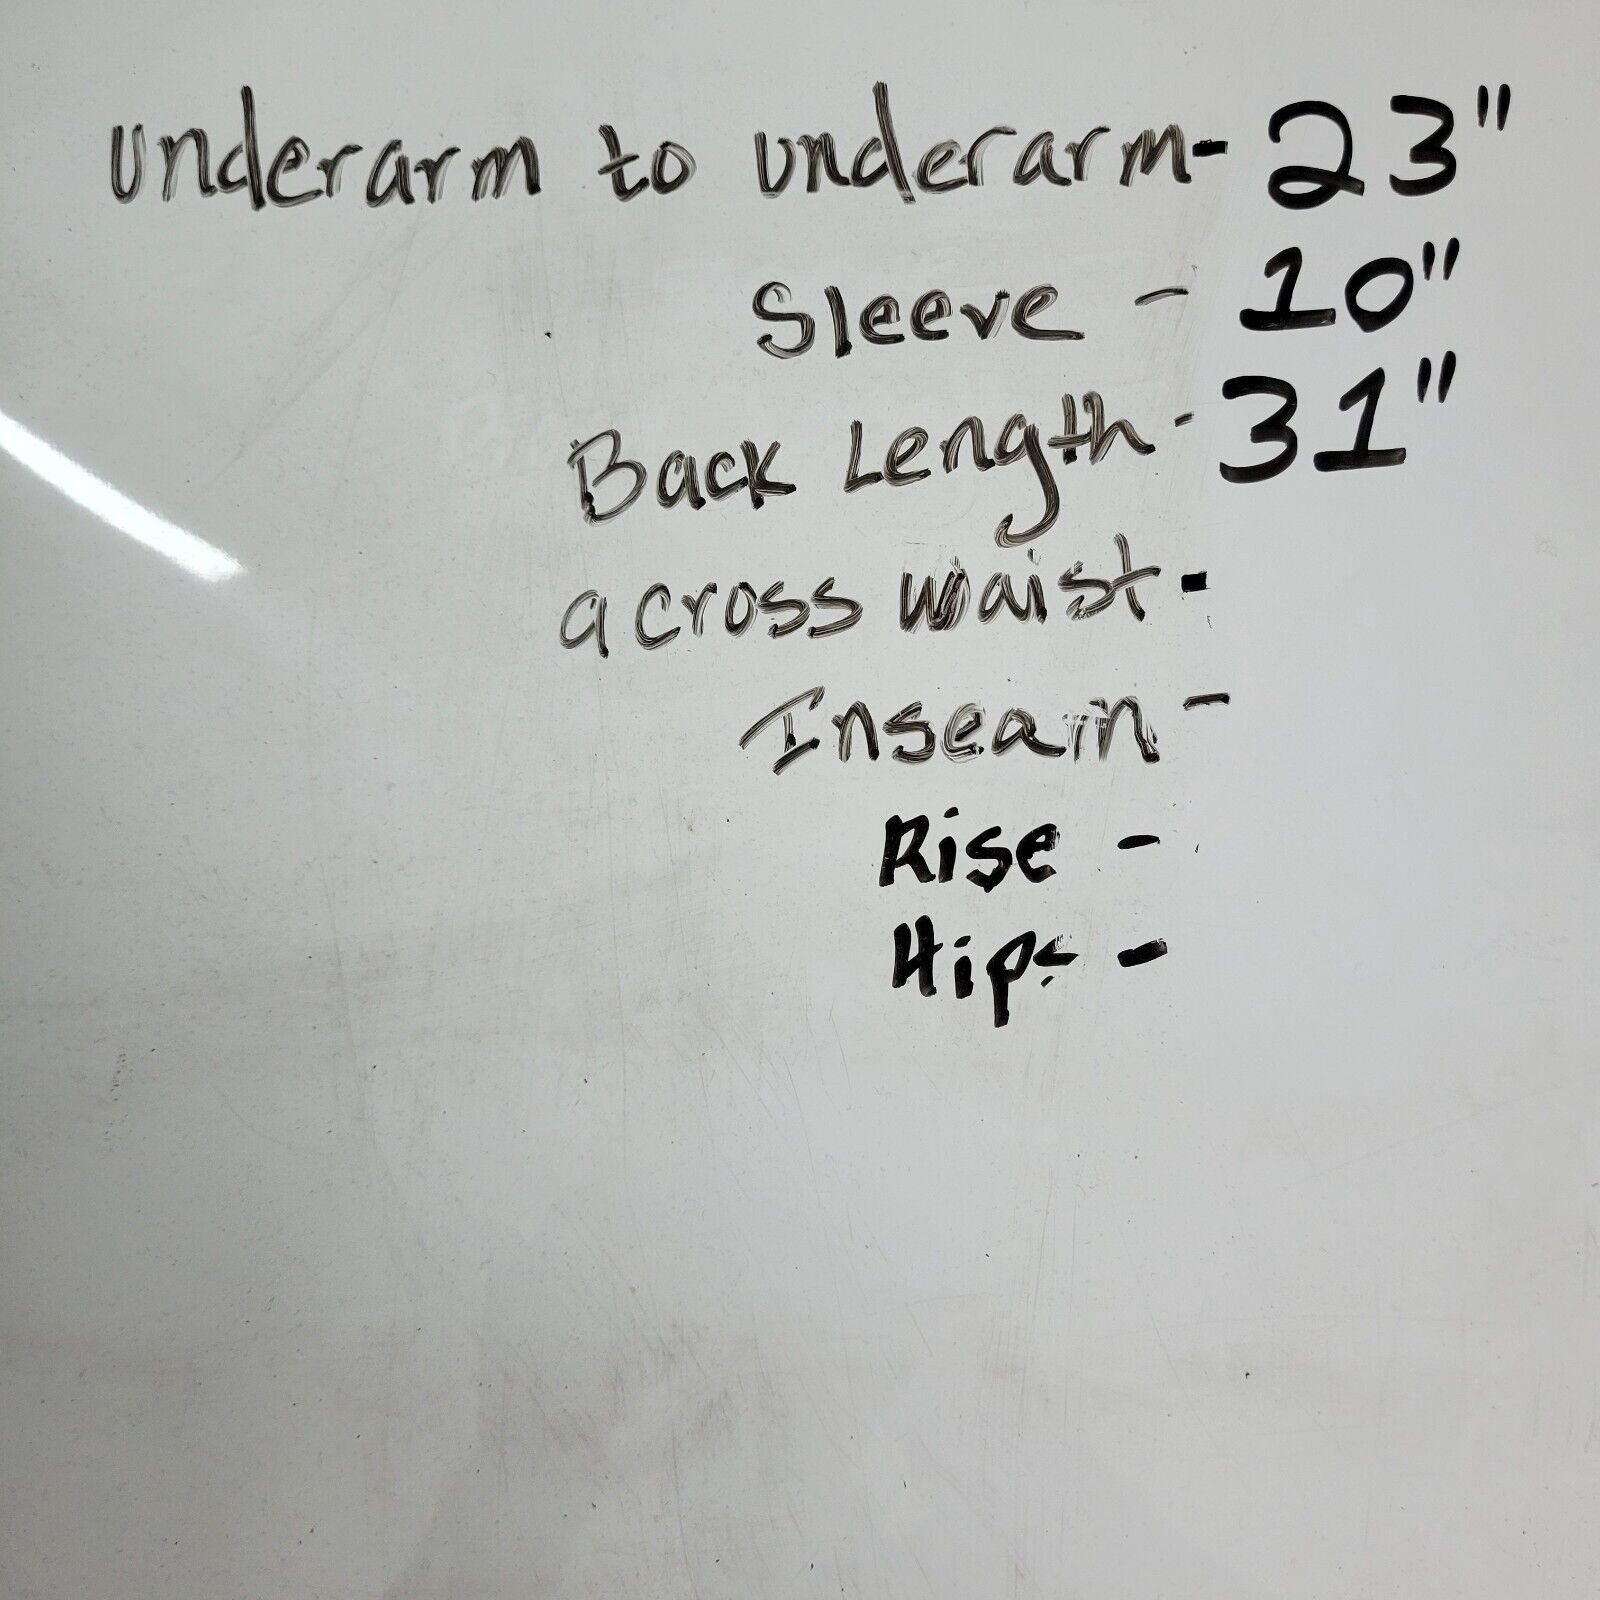 underarm to underarm- 23"
Sleeve - 10"
Back Length- 31"
across waist-
Inseam -
Rise -
Hips -